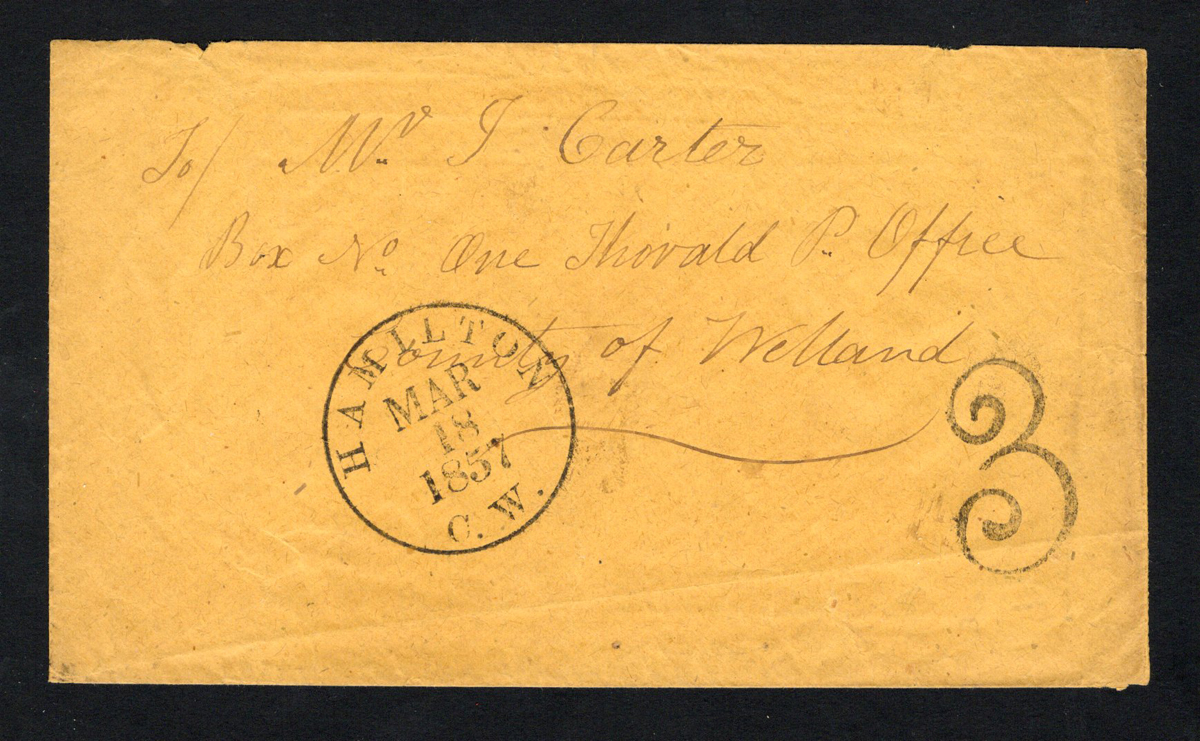 To/ Mr. J. Carter
Box No. One Thorvald P. Office
County of Welland
HAMILTON
MAR
18
1857
C. W.
3